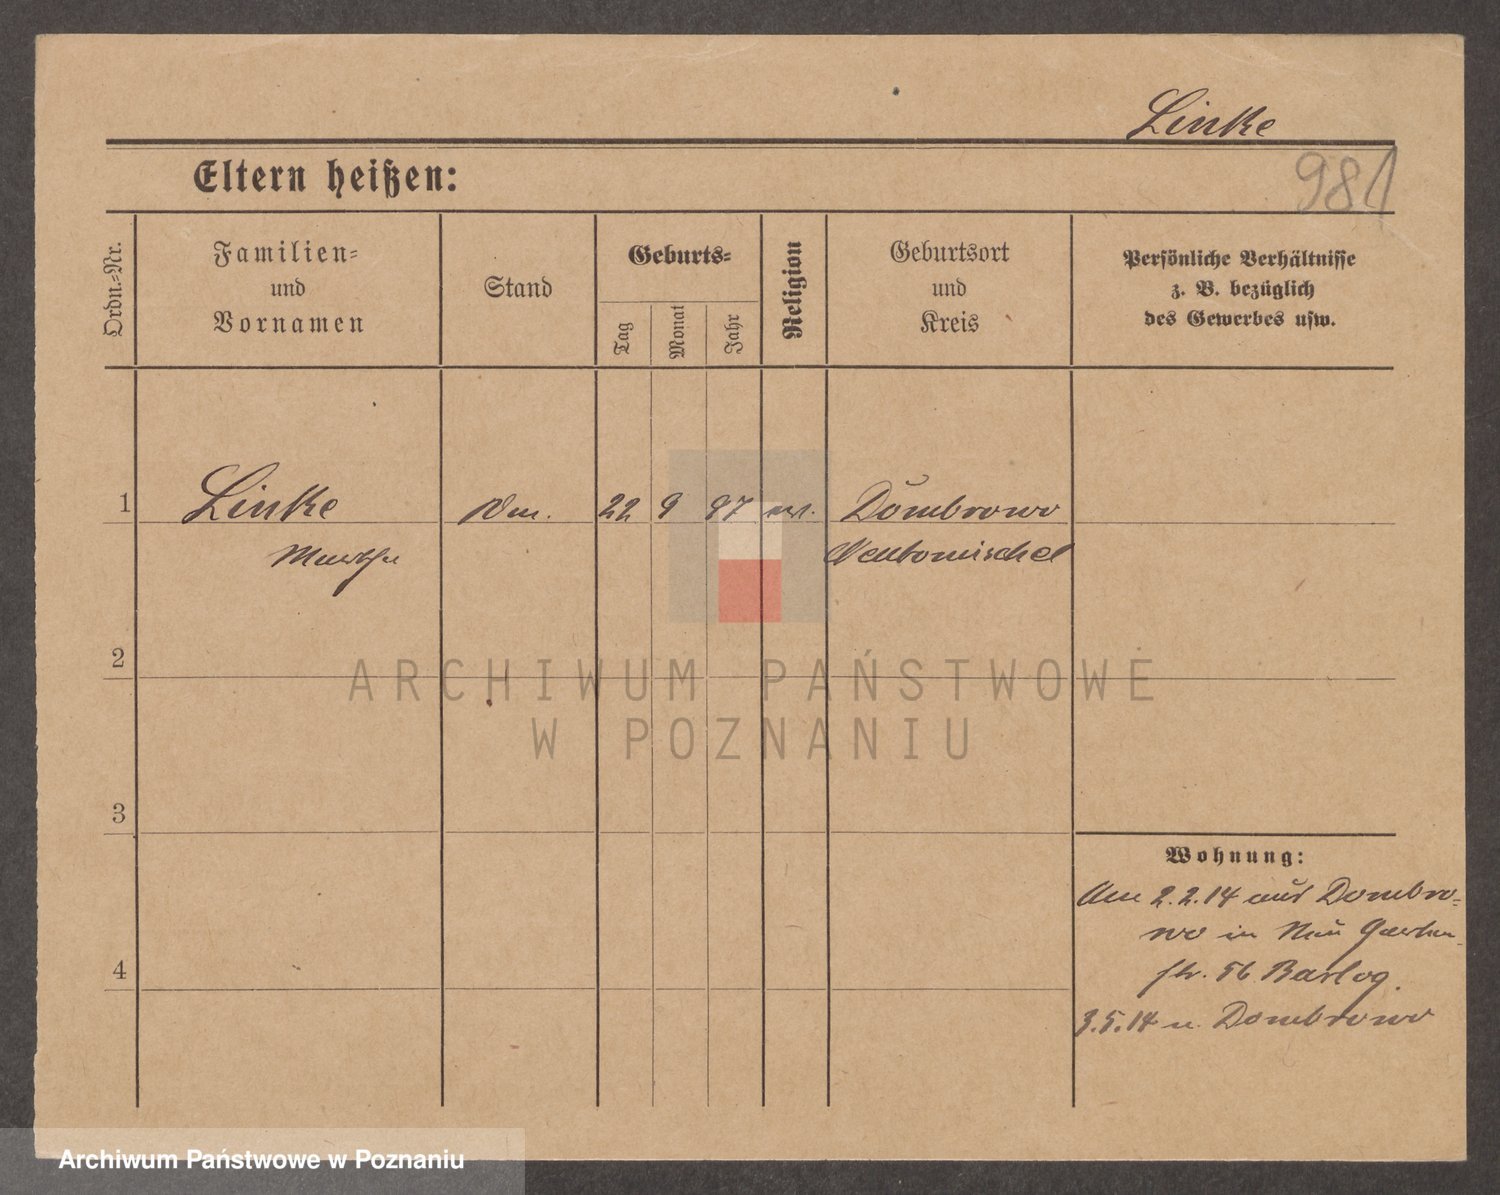 Linke
981
Eltern heißen:
Ordn.-Nr.
Familien-
und
Vornamen
Stand
Geburts-
Tag
Monat
Jahr
Religion
Geburtsort
und
Kreis
Persönliche Verhältnisse
z. B. bezüglich
des Gewerbes usw.
1
Linke
22
9
97
Dombrowo
Martha
Neutomischel
2
ARCHIWUM PAŃSTWOWE
W POZNANIU
3
Wohnung:
Am 2.2.14 aus Dombro-
wo in Neu Garten-
str. 56 Barlog.
4
3.5.14 n. Dombrowo
Archiwum Państwowe w Poznaniu